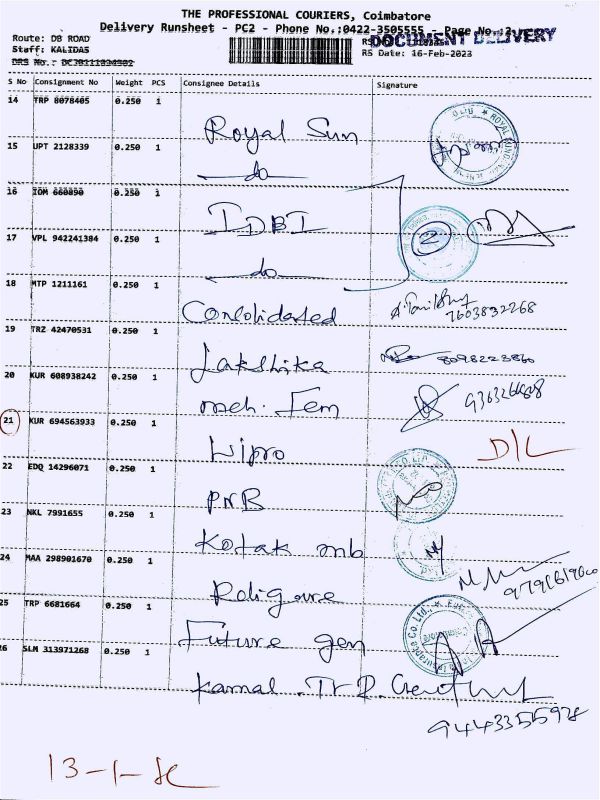 THE PROFESSIONAL COURIERS, Coimbatore
Delivery Runsheet - PC2 - Phone No.:0422-3505555 - Page No.:2
DOCUMENT DELIVERY
Route: DB ROAD
Staff: KALIDAS
RS Date: 16-Feb-2023
S No Consignment No Weight PCS Consignee Details Signature
14 TRP 8078405 0.250 1 Royal Sun
15 UPT 2128339 0.250 1 do
16 IDM 660890 0.250 1 IDBI
17 VPL 942241384 0.250 1 do
18 MTP 1211161 0.250 1 Consolidated 7603832268
19 TRZ 42470531 0.250 1 Lakshika 8098223860
20 KUR 608938242 0.250 1 meh. Fem
21 KUR 694563933 0.250 1 Wipro D/L
22 EDQ 14296071 0.250 1 PNB
23 NKL 7991655 0.250 1 Kotak mb
24 MAA 298901670 0.250 1 Religare
25 TRP 6681664 0.250 1 Future gen
26 SLM 313971268 0.250 1 Kamal
9443355978
13-1-